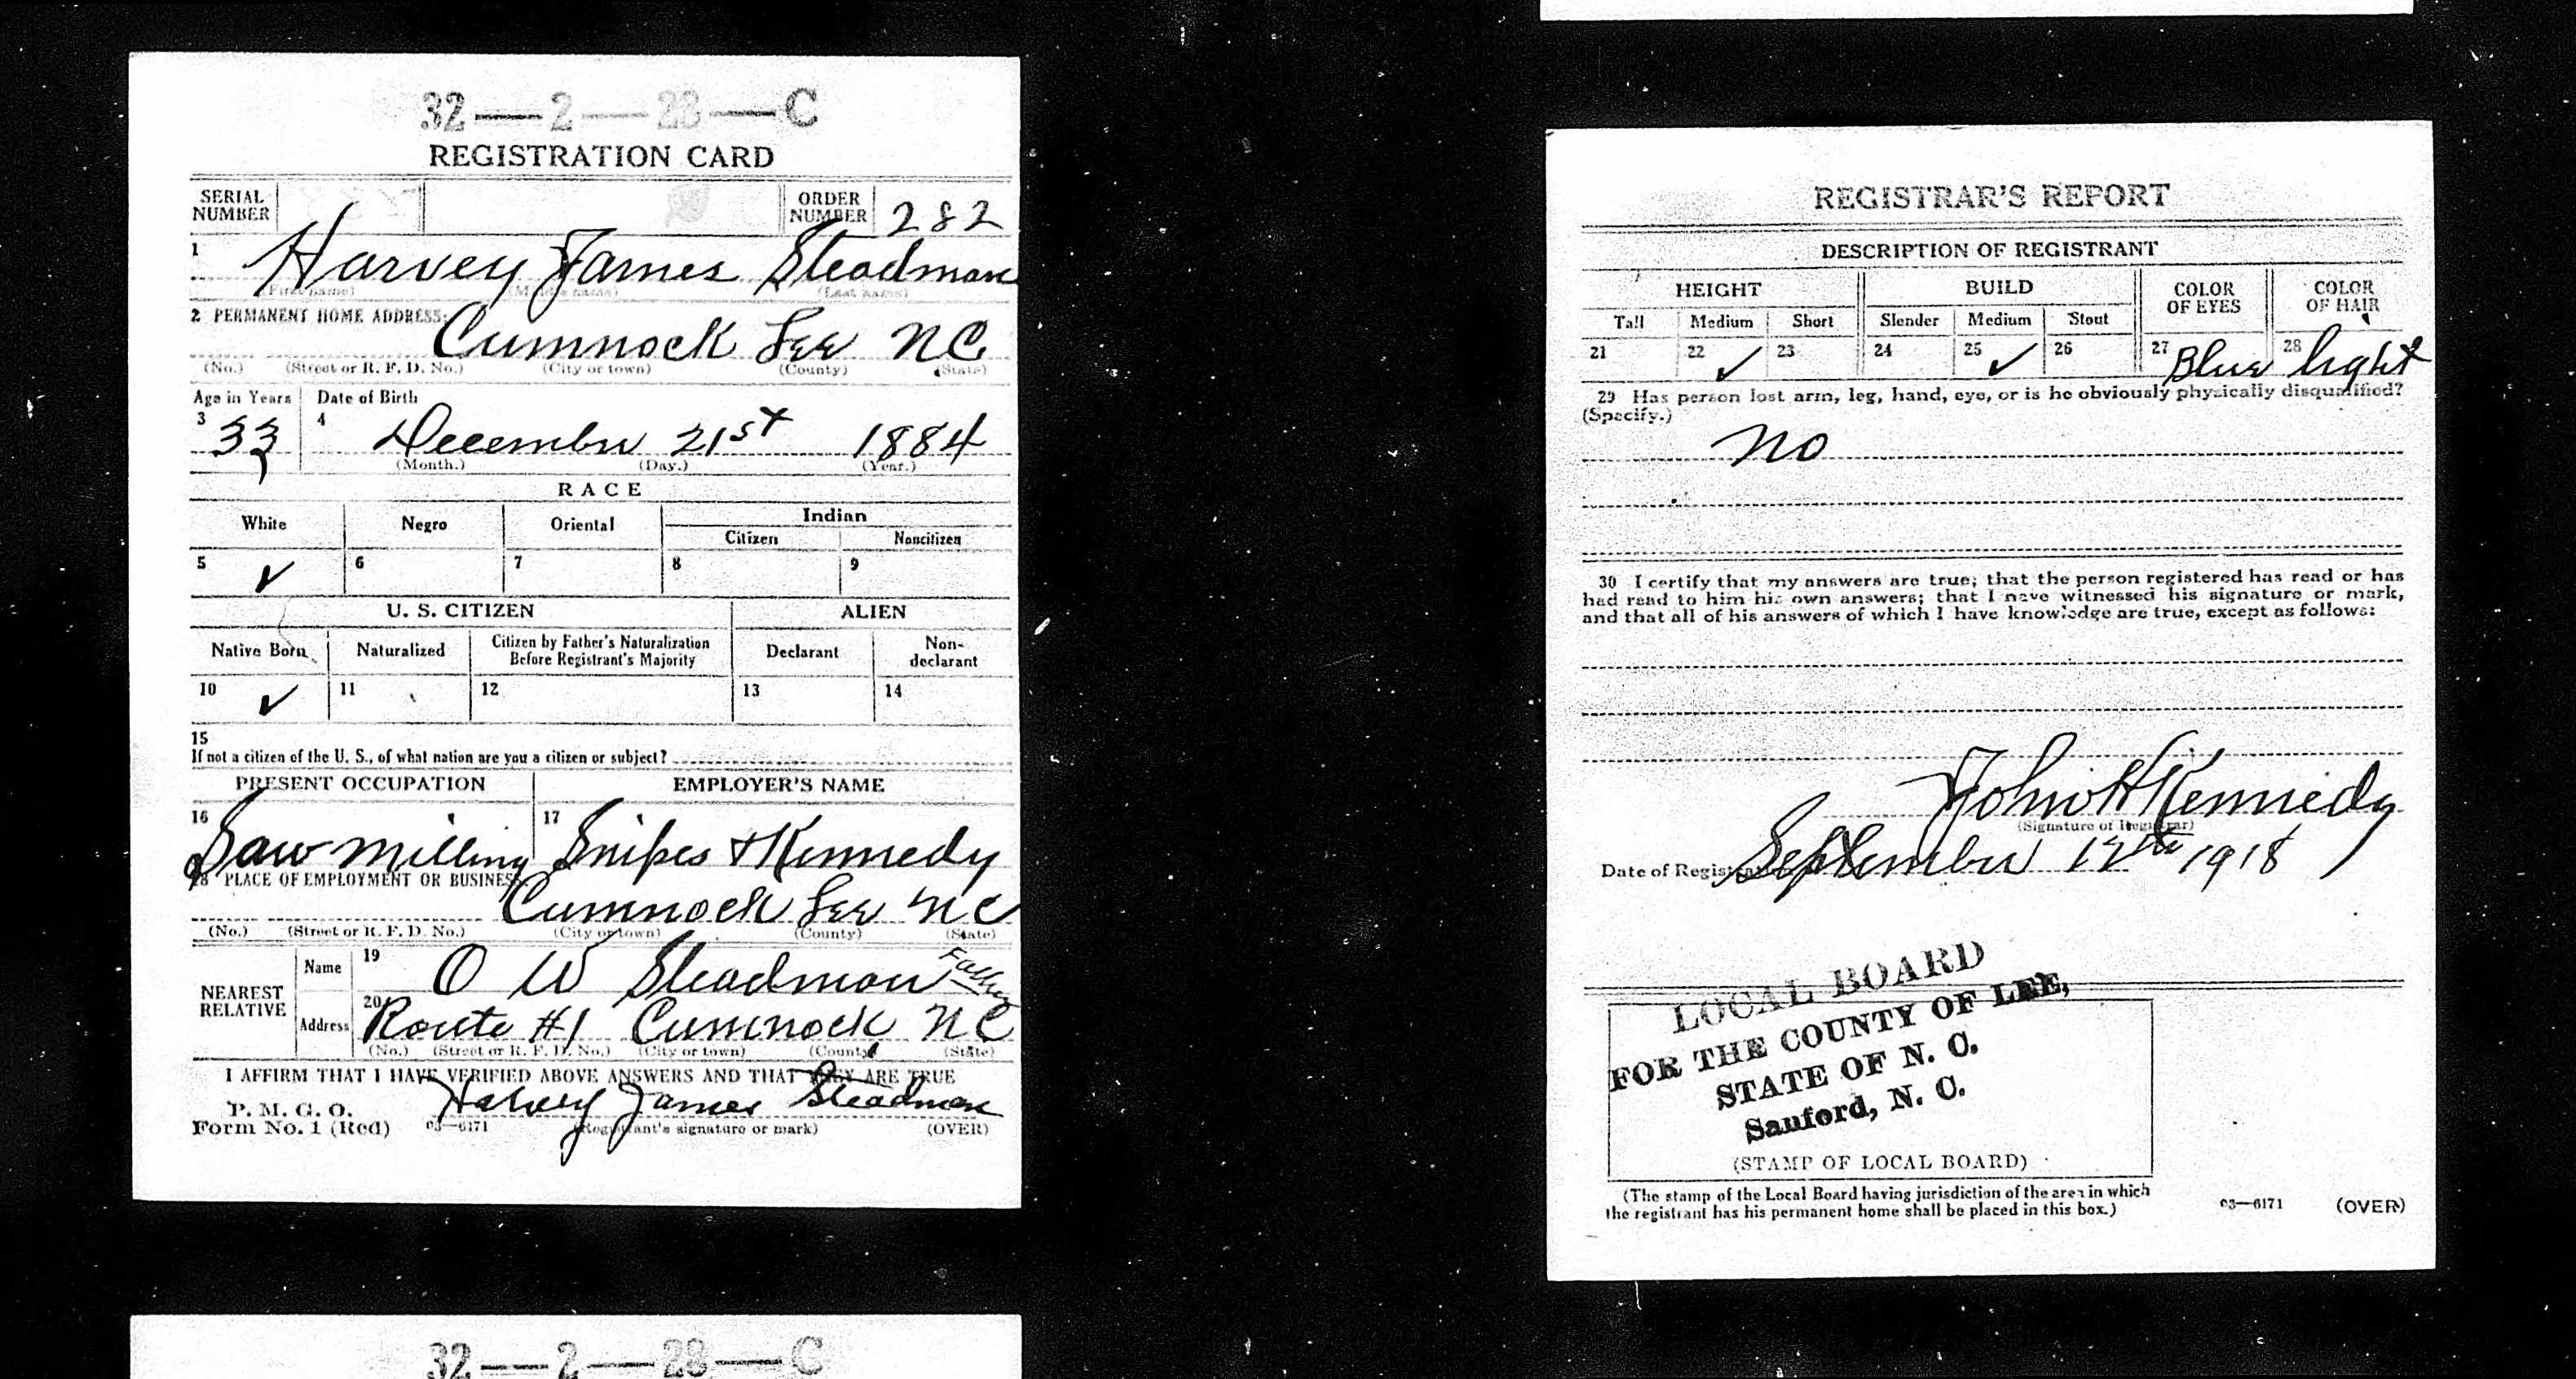 32—2—23—C
REGISTRATION CARD
SERIAL NUMBER
ORDER NUMBER 282
1 Harvey James Steadman
(First name) (Middle name) (Last name)
2 PERMANENT HOME ADDRESS:
Cumnock Lee NC
(No.) (Street or R. F. D. No.) (City or town) (County) (State)
Age in Years Date of Birth
3 33 4 December 21st 1884
(Month.) (Day.) (Year.)
RACE
White Negro Oriental Indian
Citizen Noncitizen
5 ✓ 6 7 8 9
U. S. CITIZEN ALIEN
Native Born Naturalized Citizen by Father's Naturalization Before Registrant's Majority Declarant Non-declarant
10 ✓ 11 12 13 14
15
If not a citizen of the U. S., of what nation are you a citizen or subject?
PRESENT OCCUPATION EMPLOYER'S NAME
16 Saw milling 17 Snipes & Kennedy
18 PLACE OF EMPLOYMENT OR BUSINESS:
Cumnock Lee NC
(No.) (Street or R. F. D. No.) (City or town) (County) (State)
NEAREST RELATIVE
Name 19 O W Steadman Father
Address 20 Route #1 Cumnock NC
(No.) (Street or R. F. D. No.) (City or town) (County) (State)
I AFFIRM THAT I HAVE VERIFIED ABOVE ANSWERS AND THAT THEY ARE TRUE
P. M. G. O.
Form No. 1 (Red) 03—6171
Harvey James Steadman
(Registrant's signature or mark) (OVER)
32—2—23—C
REGISTRAR'S REPORT
DESCRIPTION OF REGISTRANT
HEIGHT BUILD COLOR OF EYES COLOR OF HAIR
Tall Medium Short Slender Medium Stout
21 22 ✓ 23 24 25 ✓ 26 27 Blue 28 light
29 Has person lost arm, leg, hand, eye, or is he obviously physically disqualified?
(Specify.)
no
30 I certify that my answers are true; that the person registered has read or has
had read to him his own answers; that I have witnessed his signature or mark,
and that all of his answers of which I have knowledge are true, except as follows:
John H Kennedy
(Signature of Registrar)
Date of Registration September 12th 1918
LOCAL BOARD
FOR THE COUNTY OF LEE,
STATE OF N. C.
Sanford, N. C.
(STAMP OF LOCAL BOARD)
(The stamp of the Local Board having jurisdiction of the area in which
the registrant has his permanent home shall be placed in this box.)
03—6171 (OVER)